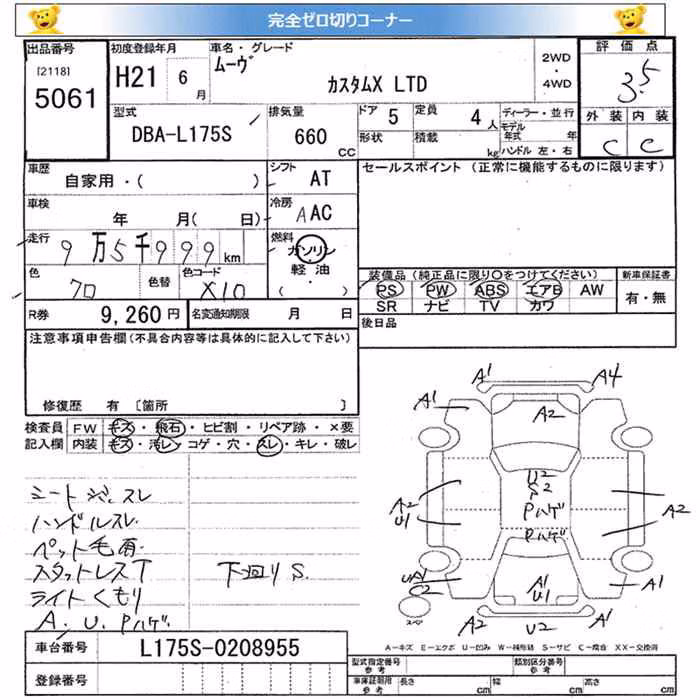 完全ゼロ切りコーナー
出品番号 [2118] 5061
初度登録年月 H21 6月
車名・グレード ムーヴ カスタムX LTD
2WD・4WD
評価点 3.5
外装 内装
C C
型式 DBA-L175S
排気量 660 CC
ドア 5 定員 4人
形状 積載 kg
ディーラー・並行
モデル年式 年
ハンドル 左・右
車歴 自家用・( )
シフト AT
セールスポイント (正常に機能するものに限ります)
車検 年 月( 日)
冷房 AAC
走行 9万5千999km
燃料 ガソリン・軽油・( )
色 色替 色コード X10
装備品(純正品に限り○をつけてください) 新車保証書
PS PW ABS エアB AW 有・無
SR ナビ TV カワ
R券 9,260円 名変通知期限 月 日
後日品
注意事項申告欄(不具合内容等は具体的に記入して下さい)
修復歴 有 〔箇所 〕
検査員記入欄
FW キズ・飛石・ヒビ割・リペア跡・×要
内装 キズ・汚レ・コゲ・穴・スレ・キレ・破レ
ハンドルスレ
ペット毛有
スタットレスT 下回りS
ライトくもり
A.U.Pハゲ
A1 A4
A1 A2
U2
S2
A2 U1 Pハゲ A2
Pハゲ
UA1 C2 A1 U1 A1
スペア
A2 U2 A1
A-キズ E-エクボ U-凹み W-補修跡 S-サビ C-腐合 XX-交換済
車台番号 L175S-0208955
登録番号
型式指定番号 参考 類別区分番号 参考
車庫証明用 参考 長さ cm 幅 cm 高さ cm